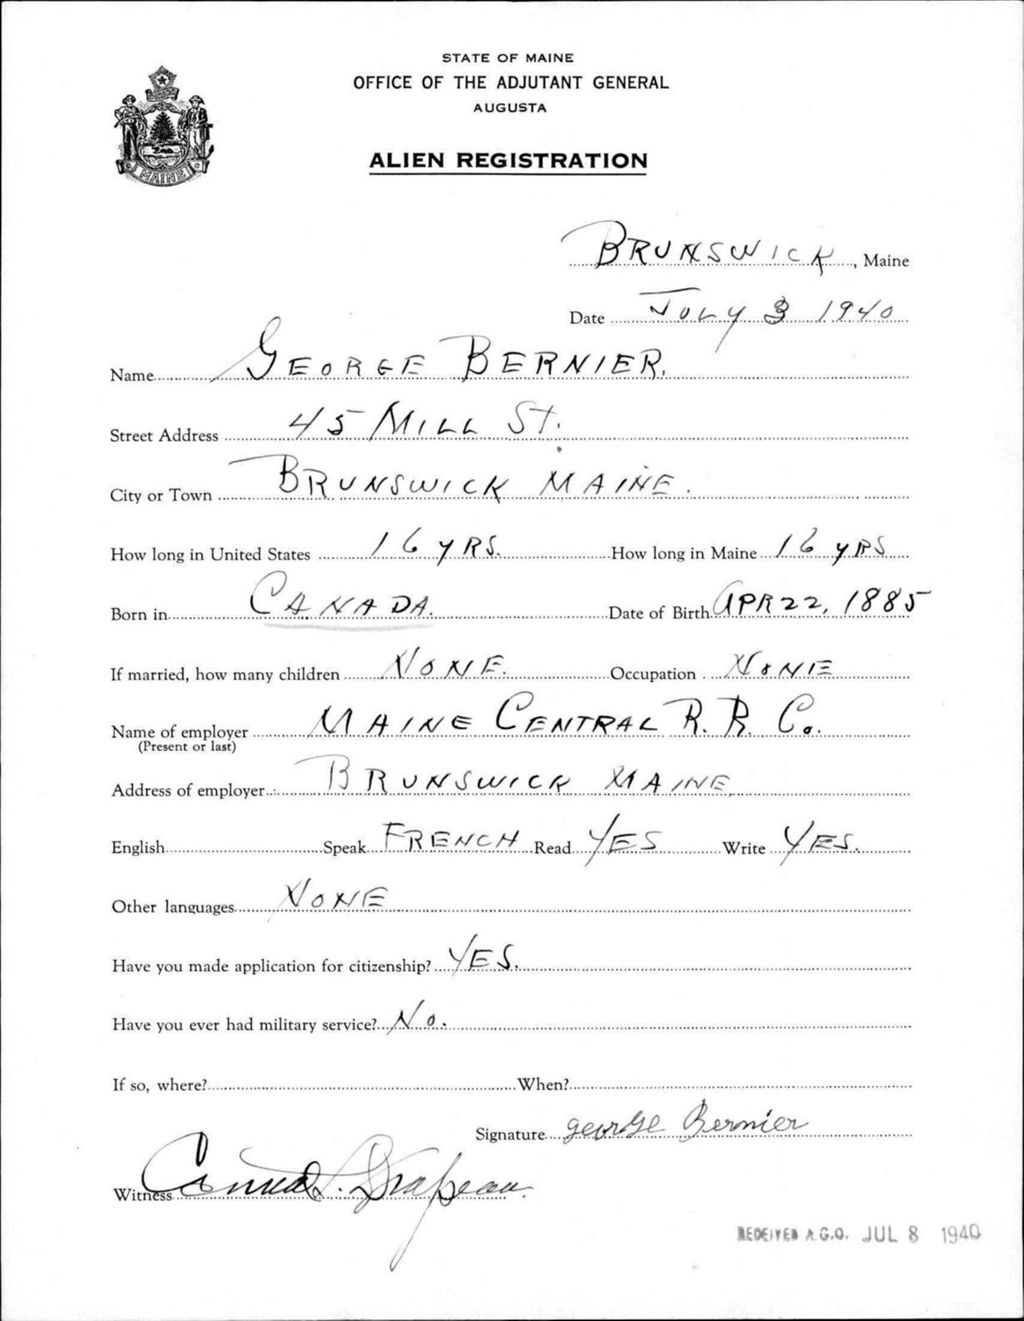 STATE OF MAINE
OFFICE OF THE ADJUTANT GENERAL
AUGUSTA
ALIEN REGISTRATION
MAINE
BRUNSWICK, Maine
Date JULY 3 1940
Name GEORGE BERNIER.
Street Address 45 MILL ST.
City or Town BRUNSWICK MAINE.
How long in United States 16 YRS. How long in Maine 16 YRS
Born in CANADA. Date of Birth APR 22, 1885
If married, how many children NONE. Occupation NONE
Name of employer MAINE CENTRAL R. R. Co.
(Present or last)
Address of employer BRUNSWICK MAINE.
English Speak FRENCH Read YES Write YES.
Other languages NONE
Have you made application for citizenship? YES.
Have you ever had military service? No.
If so, where? When?
Signature george Bernier
Witness Conrad L. Drapeau.
RECEIVED A.G.O. JUL 8 1940